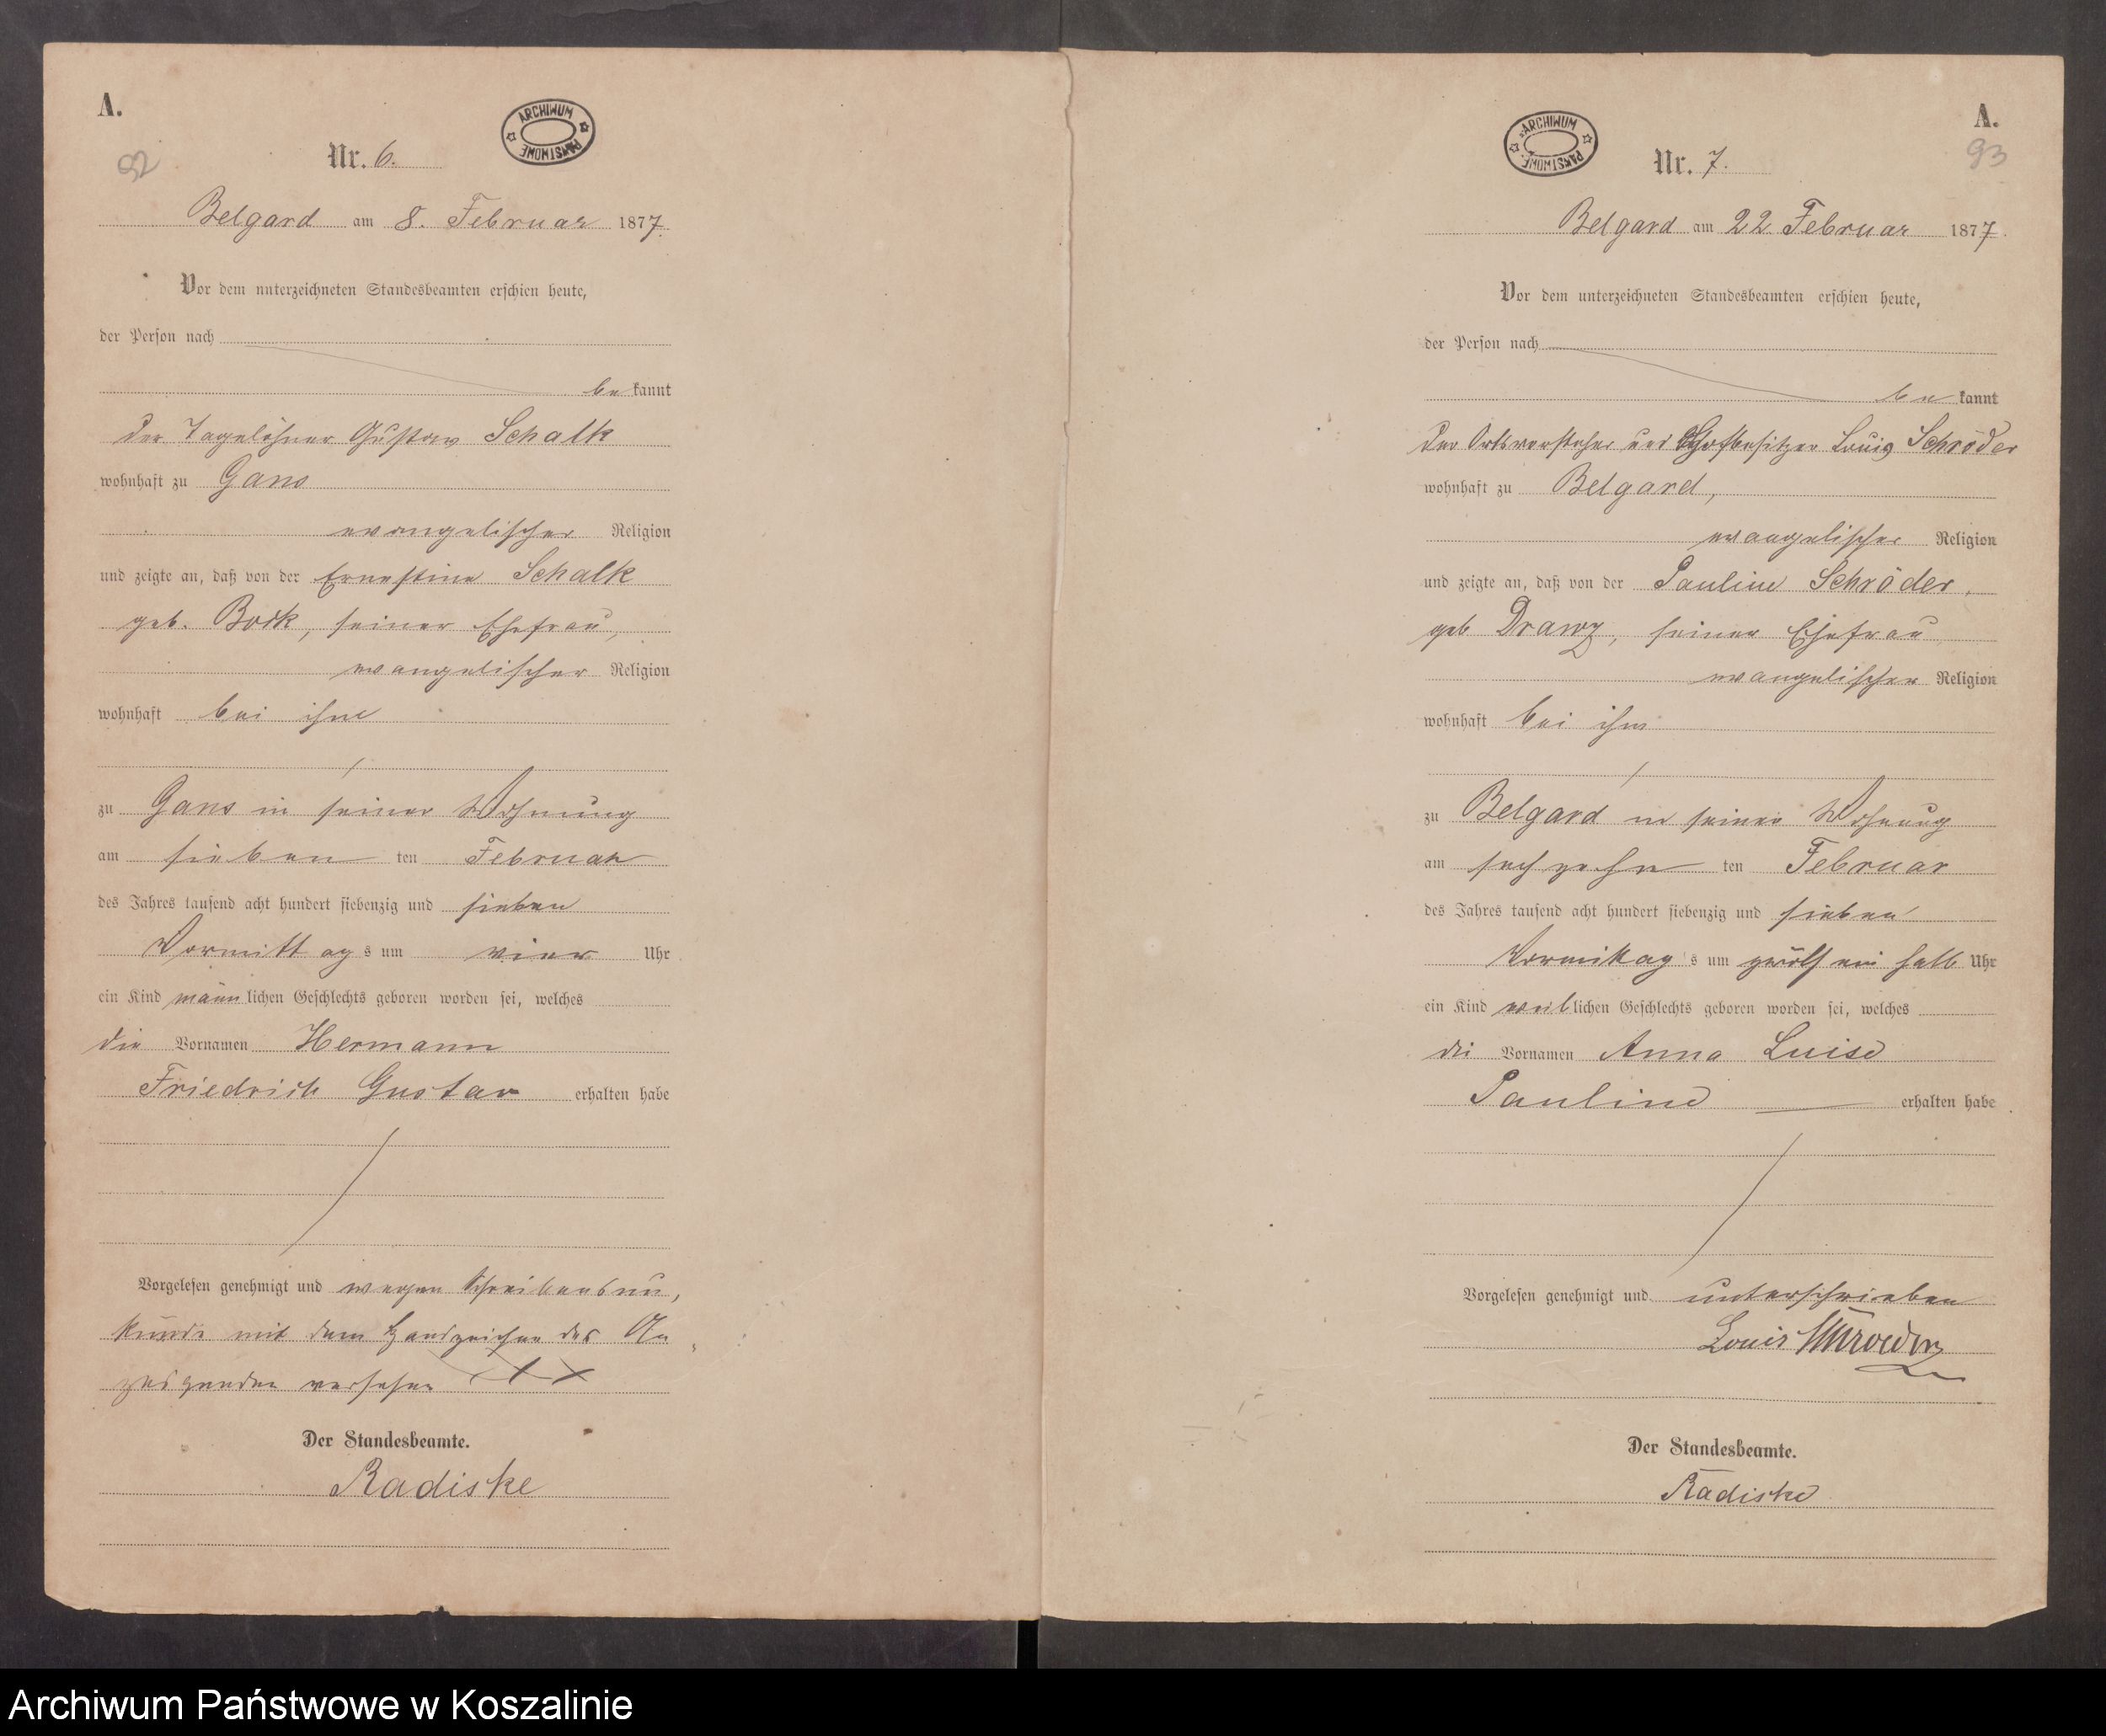 A.
92
Nr. 6.
ARCHIWUM PAŃSTWOWE
Belgard am 8. Februar 1877.
Vor dem unterzeichneten Standesbeamten erschien heute,
der Person nach
be kannt
der Tagelöhner Gustav Schalk
wohnhaft zu Gans
evangelischer Religion
und zeigte an, daß von der Ernestine Schalk
geb. Bock, seiner Ehefrau,
evangelischer Religion
wohnhaft bei ihm
zu Gans in seiner Wohnung
am sieben ten Februar
des Jahres tausend acht hundert siebenzig und sieben
Vormittag s um vier Uhr
ein Kind männlichen Geschlechts geboren worden sei, welches
die Vornamen Hermann
Friedrich Gustav erhalten habe
Vorgelesen genehmigt und wegen Schreibensun,
kunde mit dem Handzeichen des An
zeigenden versehen XXX
Der Standesbeamte.
Radiske
A.
93
Nr. 7.
ARCHIWUM PAŃSTWOWE
Belgard am 22 Februar 1877.
Vor dem unterzeichneten Standesbeamten erschien heute,
der Person nach
be kannt
der Ortsvorsteher und Hofbesitzer Louis Schröder
wohnhaft zu Belgard,
evangelischer Religion
und zeigte an, daß von der Pauline Schröder,
geb Drawz, seiner Ehefrau
evangelischer Religion
wohnhaft bei ihm
zu Belgard in seiner Wohnung
am sechzehn ten Februar
des Jahres tausend acht hundert siebenzig und sieben
Vormittag s um zwölf ein halb Uhr
ein Kind weiblichen Geschlechts geboren worden sei, welches
die Vornamen Anna Luise
Pauline erhalten habe
Vorgelesen genehmigt und unterschrieben
Louis Schroeder
Der Standesbeamte.
Radiske
Archiwum Państwowe w Koszalinie